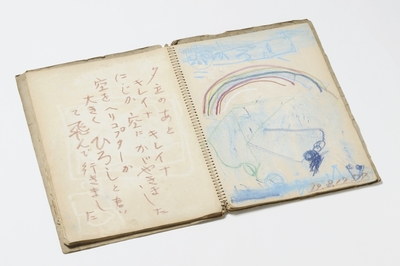 夕立のあと
キレイナ キレイナ
にじが 空にかゞやきました
ヘリコプターが
空を
大きく ひろしと書い
て飛んで行きました